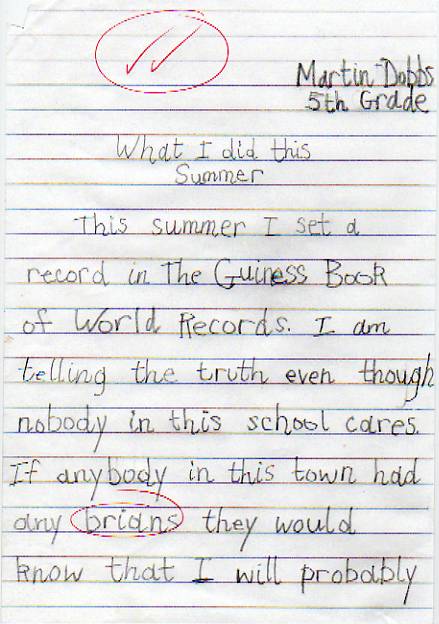 Martin Dobbs
5th Grade
What I did this
Summer
This summer I set a
record in The Guiness Book
of World Records. I am
telling the truth even though
nobody in this school cares.
If anybody in this town had
any brians they would
know that I will probably